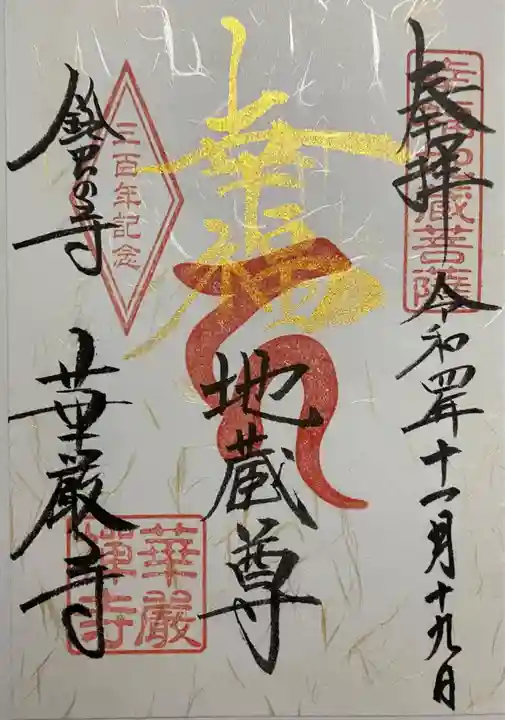 奉拝
令和四年十一月十九日
幸福地蔵菩薩
幸福
地蔵尊
鈴虫の寺
三百年記念
華厳寺
華嚴禅寺